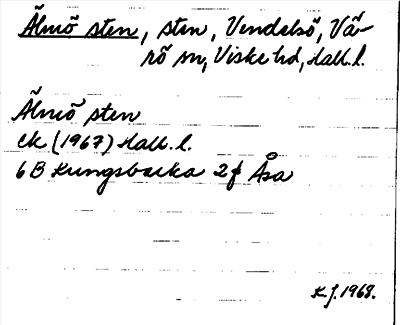 Älmö sten, sten, Vendelsö, Vä-
rö sn, Viske hd, Hall. l.
Älmö sten
ek (1967) Hall. l.
6B Kungsbacka 2f Åsa
K.J. 1968.